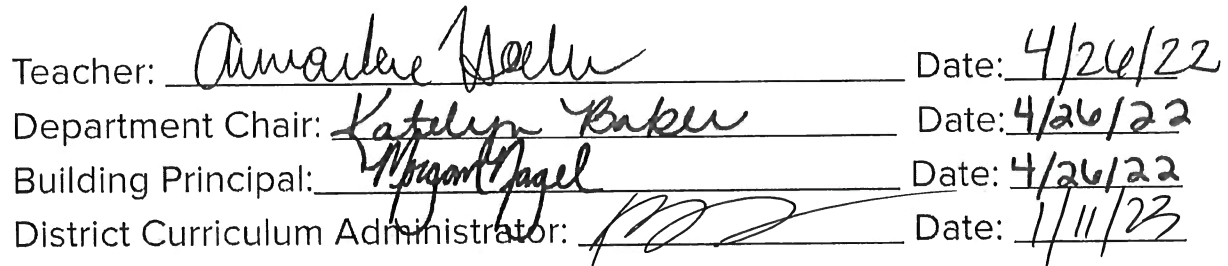 Teacher: Date: 4/26/22
Department Chair: Katelyn Baker Date: 4/26/22
Building Principal: Morgan Nagel Date: 4/26/22
District Curriculum Administrator: Date: 1/11/23